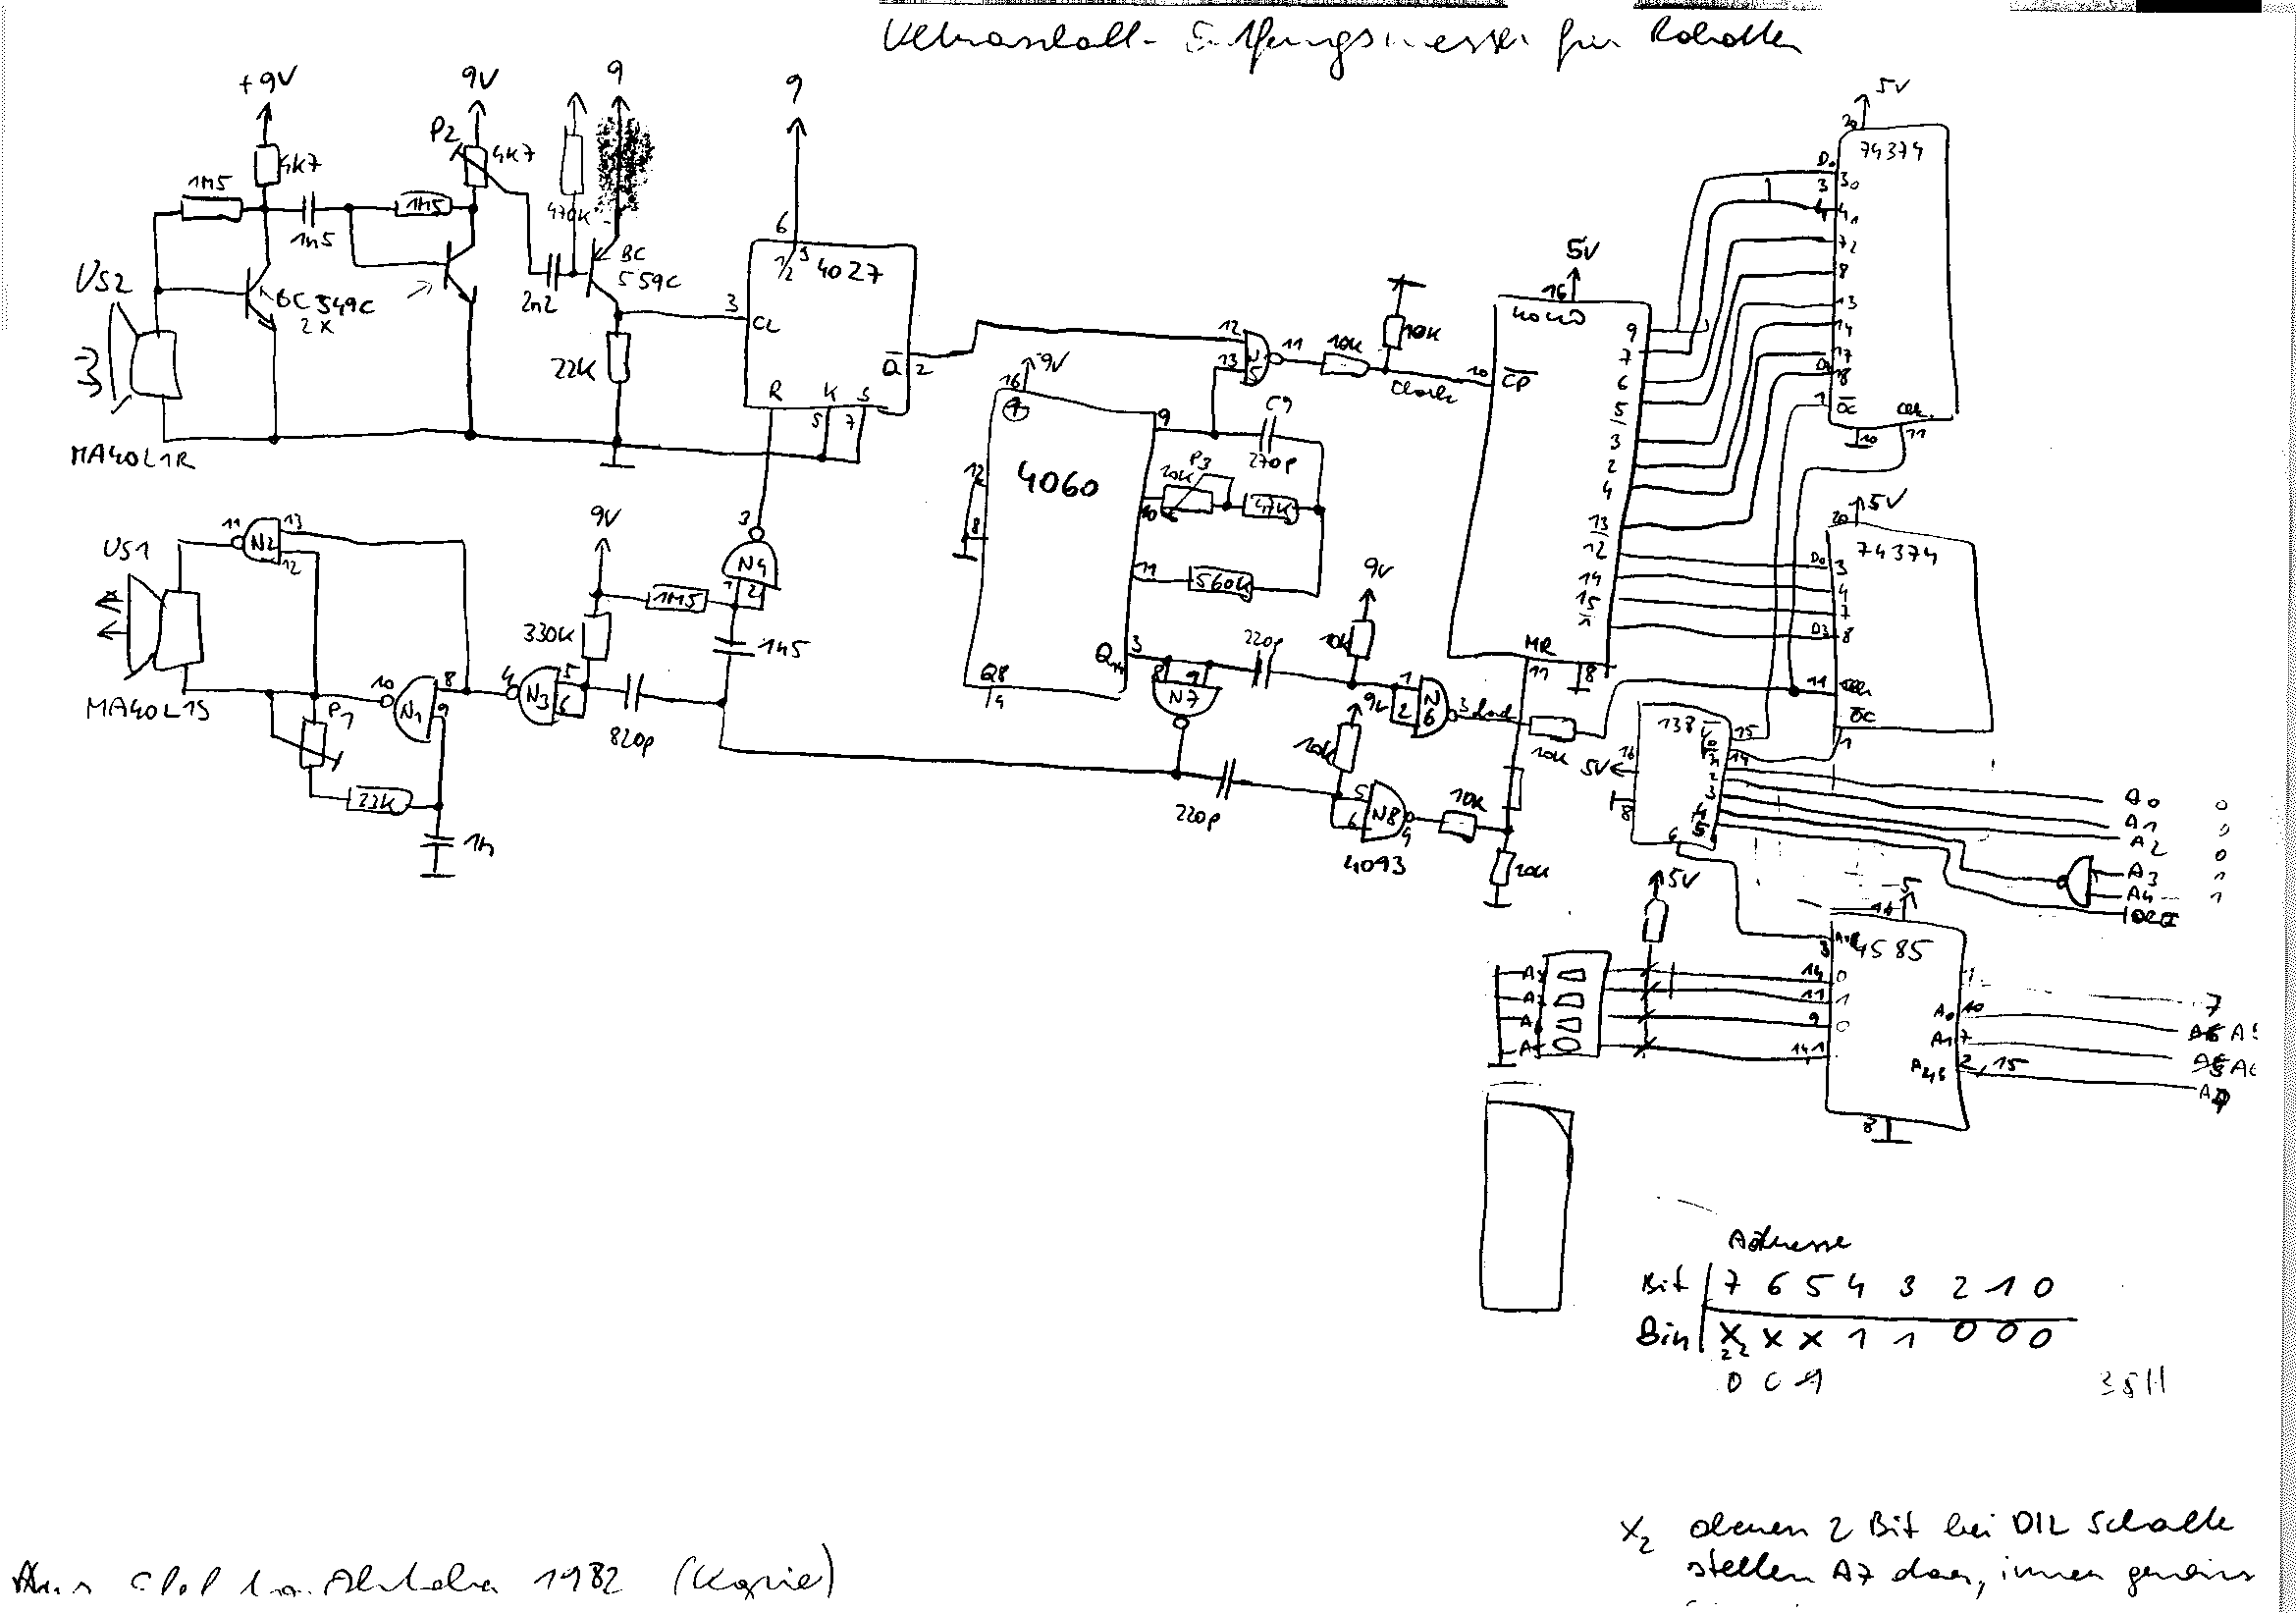 Ultraschall - Entfernungsmesser für Roboter
+9V
9V
9
9
4K7
P2
4K7
1M5
1n5
1M5
470K
BC
559C
US2
BC 549C
2x
2n2
22K
MA40L1R
6
1/2
S
4027
3
CL
Q
2
R
K
S
5
7
12
13
N5
11
10K
10K
Clock
10
CP
5V
16
4040
9
7
6
5
3
2
4
13
12
14
15
1
MR
11
8
5V
20
74374
D0
3
0
4
1
7
2
8
13
14
17
18
1
OC
10
11
5V
20
74374
D0
3
4
7
D3
8
11
OC
1
9V
16
4060
12
8
9
C9
270p
P3
10K
47K
10
11
560K
3
Q14
Q8
14
US1
11
N2
13
12
MA40L1S
P1
10
N1
8
9
23K
1n
4
N3
5
6
330K
9V
820p
1M5
3
N4
1
2
1n5
8
9
N7
220p
9V
10K
1
2
N6
3
Clock
10K
9V
10K
220p
5
6
N8
4
4093
10K
10K
138
16
5V
8
15
14
2
3
4
5
6
A0 0
A1 0
A2 0
A3 1
A4 1
5V
5
16
4585
3
14
0
11
1
9
0
14
1
A0 10
A1 7
A2,3 2, 15
7
8
Adresse
Bit 7 6 5 4 3 2 1 0
Bin X X X 1 1 0 0 0
X2 oberen 2 Bit bei DIL Schalter
stellen A7 dar, immer
1982 (Kopie)